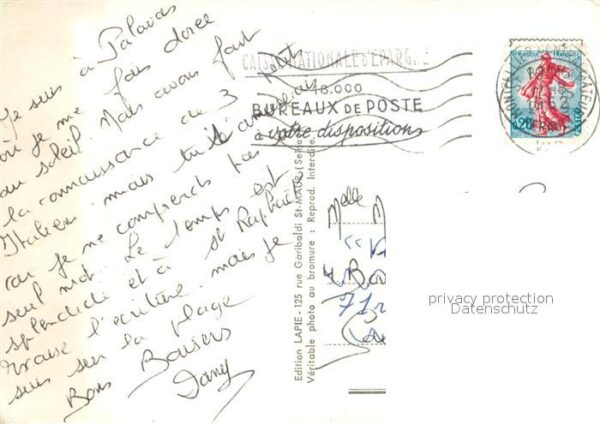 Je suis à Palavas
où je me fais dorée
au soleil Nous avons fait
la connaissance de 3
Italien. mais tu
car je ne comprends pas
seul mot. Le temps est
splendide et à St Raphaël
l'écriture. mais je
suis sur la plage
Bons Baisers
Dany
CAISSE NATIONALE D'EPARGNE
18.000
BUREAUX DE POSTE
à votre disposition
0,20
Edition LAPIE - 125 rue Garibaldi St-MAUR (Seine)
Véritable photo au bromure : Reprod. Interdite
Melle M
privacy protection
Datenschutz